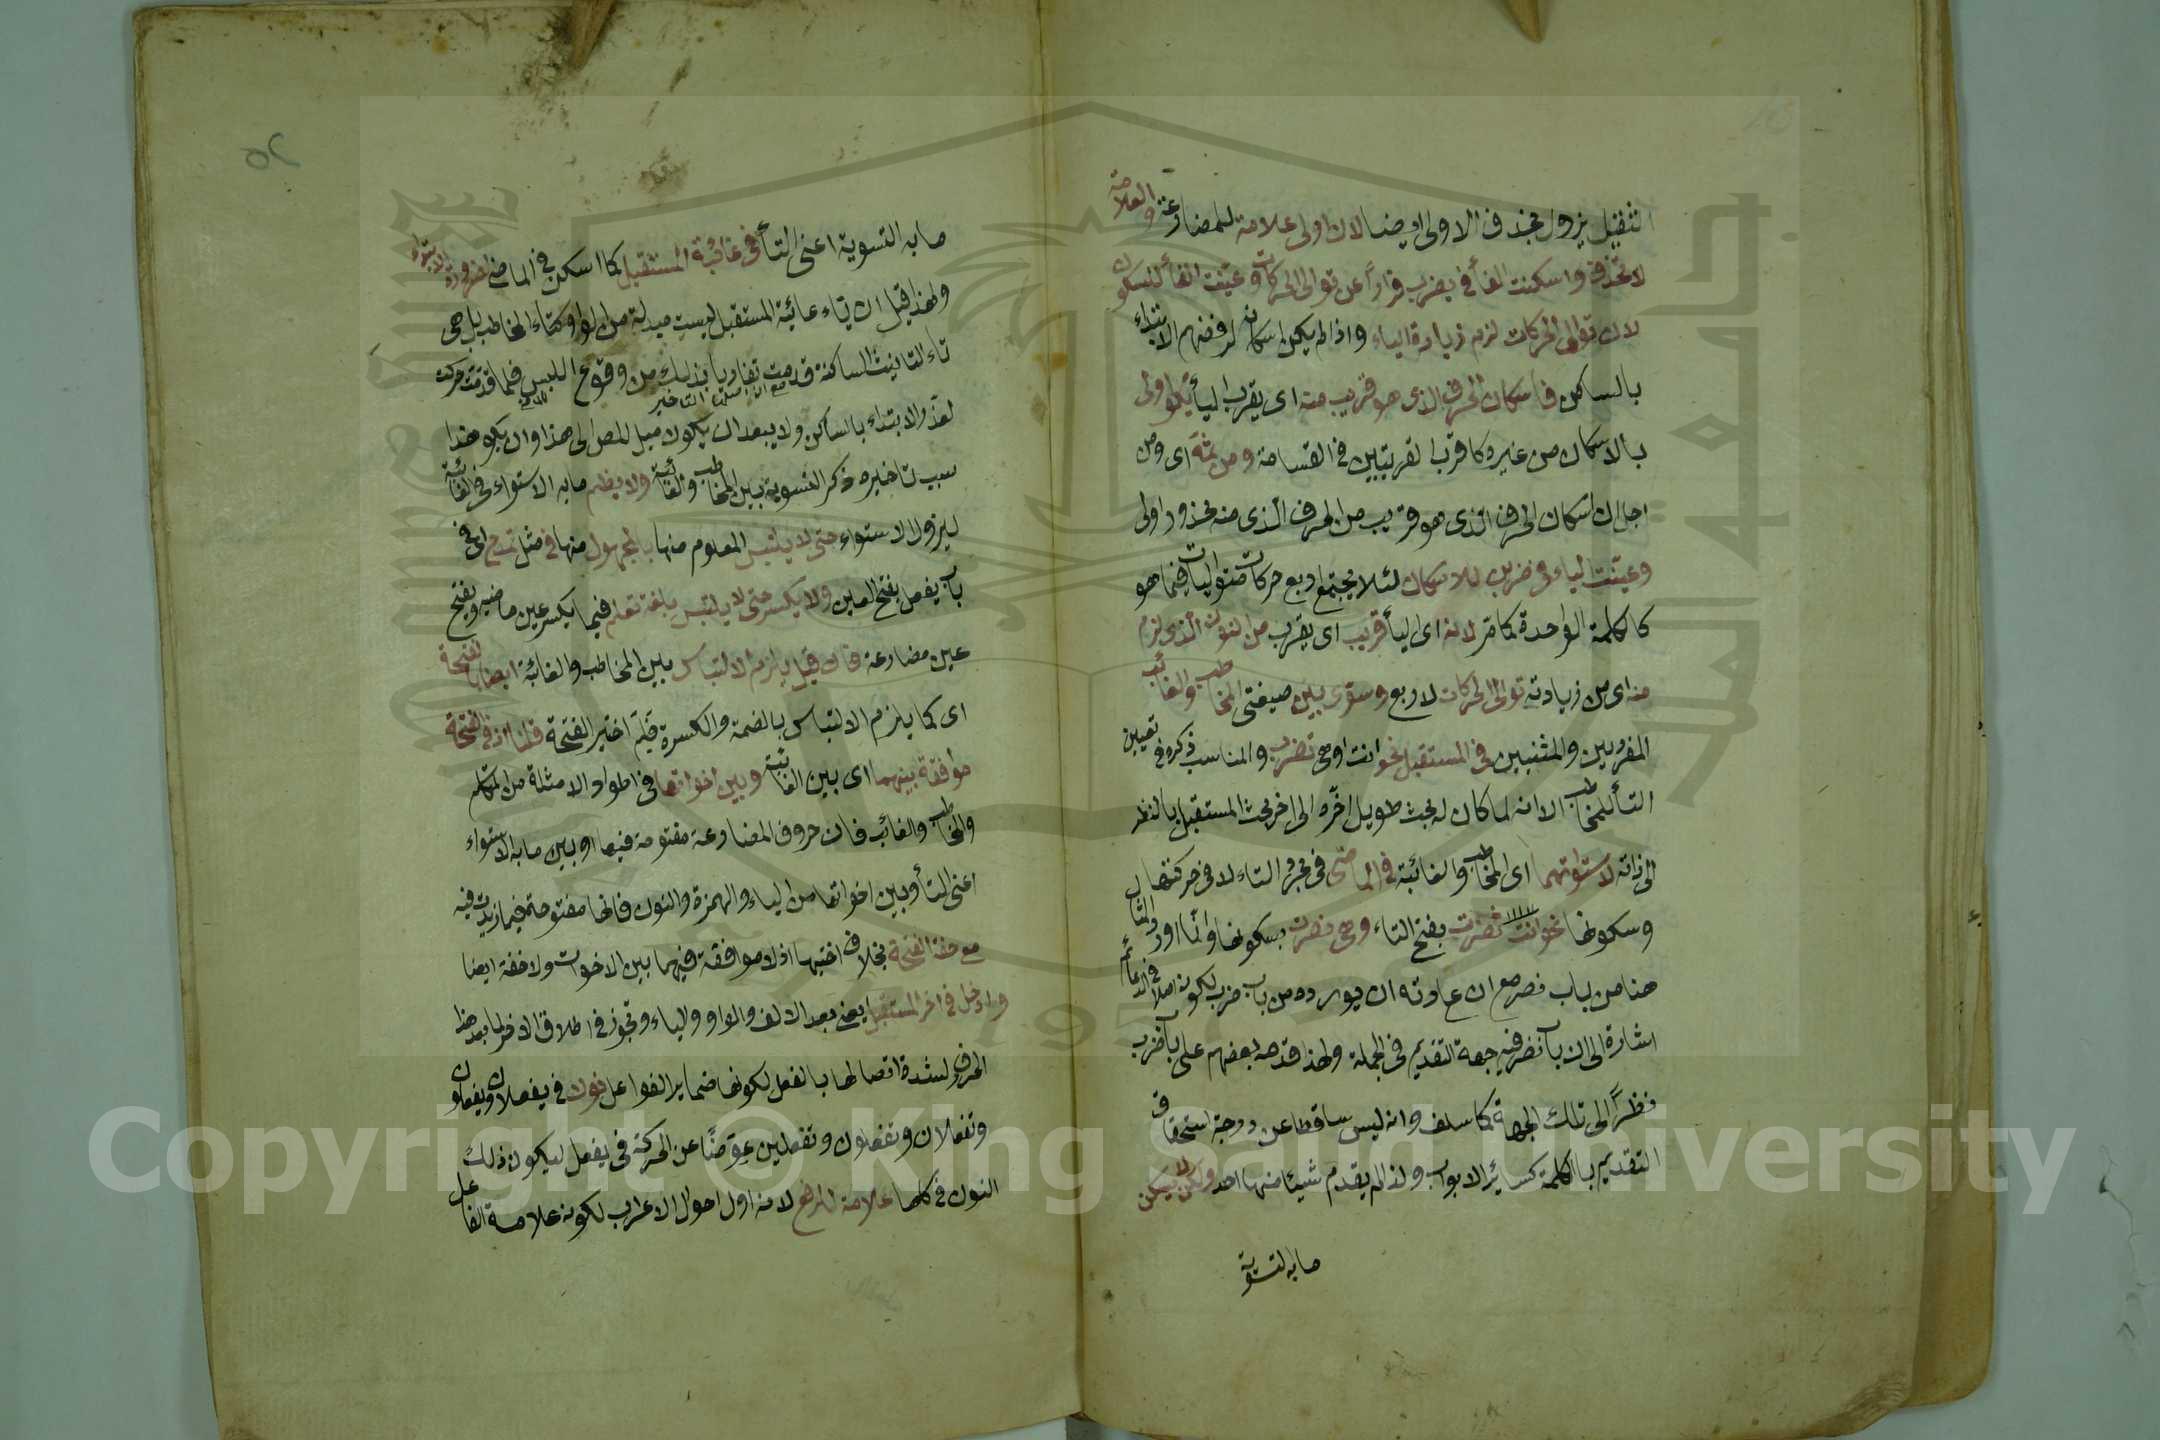 الثقيل يزول بحذف الاولى ايضا لان اولى علامة للمضارعة والعلامة
لا تحذف واسكنت الفاء في يضرب فرارا عن توالى الحركات وعينت الفاء للسكون
لان توالى الحركات لزم زيادة الياء واذا لم يكن اسكانه لرفضهم الابتداء
بالساكن فاسكان الحرف الذى هو قريب منه اى بقرب الياء يكون اولى
بالاسكان من غيره كاقرب القريتين في القسامة ومن ثمة اى ومن
اجل ان اسكان الحرف الذى هو قريب من الحرف الذى منه محذور اولى
وعينت الياء في ضربن للاسكان لئلا يجتمع اربع حركات متواليات فيما هو
كالكلمة الواحدة كما مر لانه اى الياء قريب اى بقرب من النون الذى لزم
منه اى من زيادته توالى الحركات الاربع وسوى بين صيغتى المخاطب والغائب
المفردين والمثنيين في المستقبل نحو انت او هى تضرب والمناسب ذكره في تعيين
التاء للمخاطب الا انه لما كان له بحث طويل اخره الى اخر بحث المستقبل بالنظر
الى ذاته لاستوائهما اى المخاطب والغائبة في الماضى في مجرد التاء لا في حركتها
وسكونها نحو انت نصرت بفتح التاء وهى نصرت بسكونها وانما اورد المثال
هنا من باب نصر مع ان عادته ان يورده من باب ضرب لكونه اصلا في الدعائم
اشارة الى ان باب نصر فيه جهة التقديم في الجملة ولهذا قدمه بعضهم على باب ضرب
نظرا الى تلك الجهة كما سلف وانه ليس ساقطا عن درجة استحقاق
التقديم بالكلمة كسائر الابواب ولذا لم يقدم شيئا منها احد ولكن لا يسكن
ما به التسوية
٥٢
ما به التسوية اعنى التاء في غائبة المستقبل كما اسكن في الماضى لضرورة الابتداء
ولهذا قيل ان تاء غائبة المستقبل ليست مبدلة من الواو كتاء المخاطب بل هى
تاء التانيث الساكنة قدمت تفاديا بذلك من وقوع اللبس فلما قدمت حركت
مع ان اصلها التاخير
لتعذر الابتداء بالساكن ولا يبعد ان يكون ميل المص الى هذا وان يكون هذا
سبب تاخيره ذكر التسوية بين المخاطب والغائبة ولا يضم ما به الاستواء في الغائبة
ليزول الاستواء حتى لا يلتبس المعلوم منها بالمجهول منها في مثل تمدح اى في
باب يفعل بفتح العين ولا يكسر حتى لا يلتبس بلغة تعلم فيما يكسر عين ماضيه ويفتح
عين مضارعه فان قيل يلزم الالتباس بين المخاطب والغائبة ايضا بالفتحة
اى كما يلزم الالتباس بالضمة والكسرة فلم اختير الفتحة قلنا اذ في الفتحة
موافقة بينهما اى بين الغائبة وبين اخواتها في اطراد الامثلة من المتكلم
والمخاطب والغائب فان حروف المضارعة مفتوحة فيها او بين ما به الاستواء
اعنى التاء وبين اخواتها من الياء والهمزة والنون فانها مفتوحة فيما زيدت فيه
مع خفة الفتحة بخلاف اختيها اذ لا موافقة فيهما بين الاخوات ولا خفة ايضا
وادخل في اخر المستقبل يعنى بعد الالف والواو والياء وتجوز في اطلاق الاخر لما بعد هذا
الحروف لشدة اتصالها بالفعل لكونها ضمائر الفواعل نون في يفعلان ويفعلون
وتفعلان وتفعلون وتفعلين عوضا عن الحركة في يفعل ليكون ذلك
النون في كلها علامة للرفع لانه اول احوال الاعراب لكونه علامة الفاعل
Copyright © King Saud University